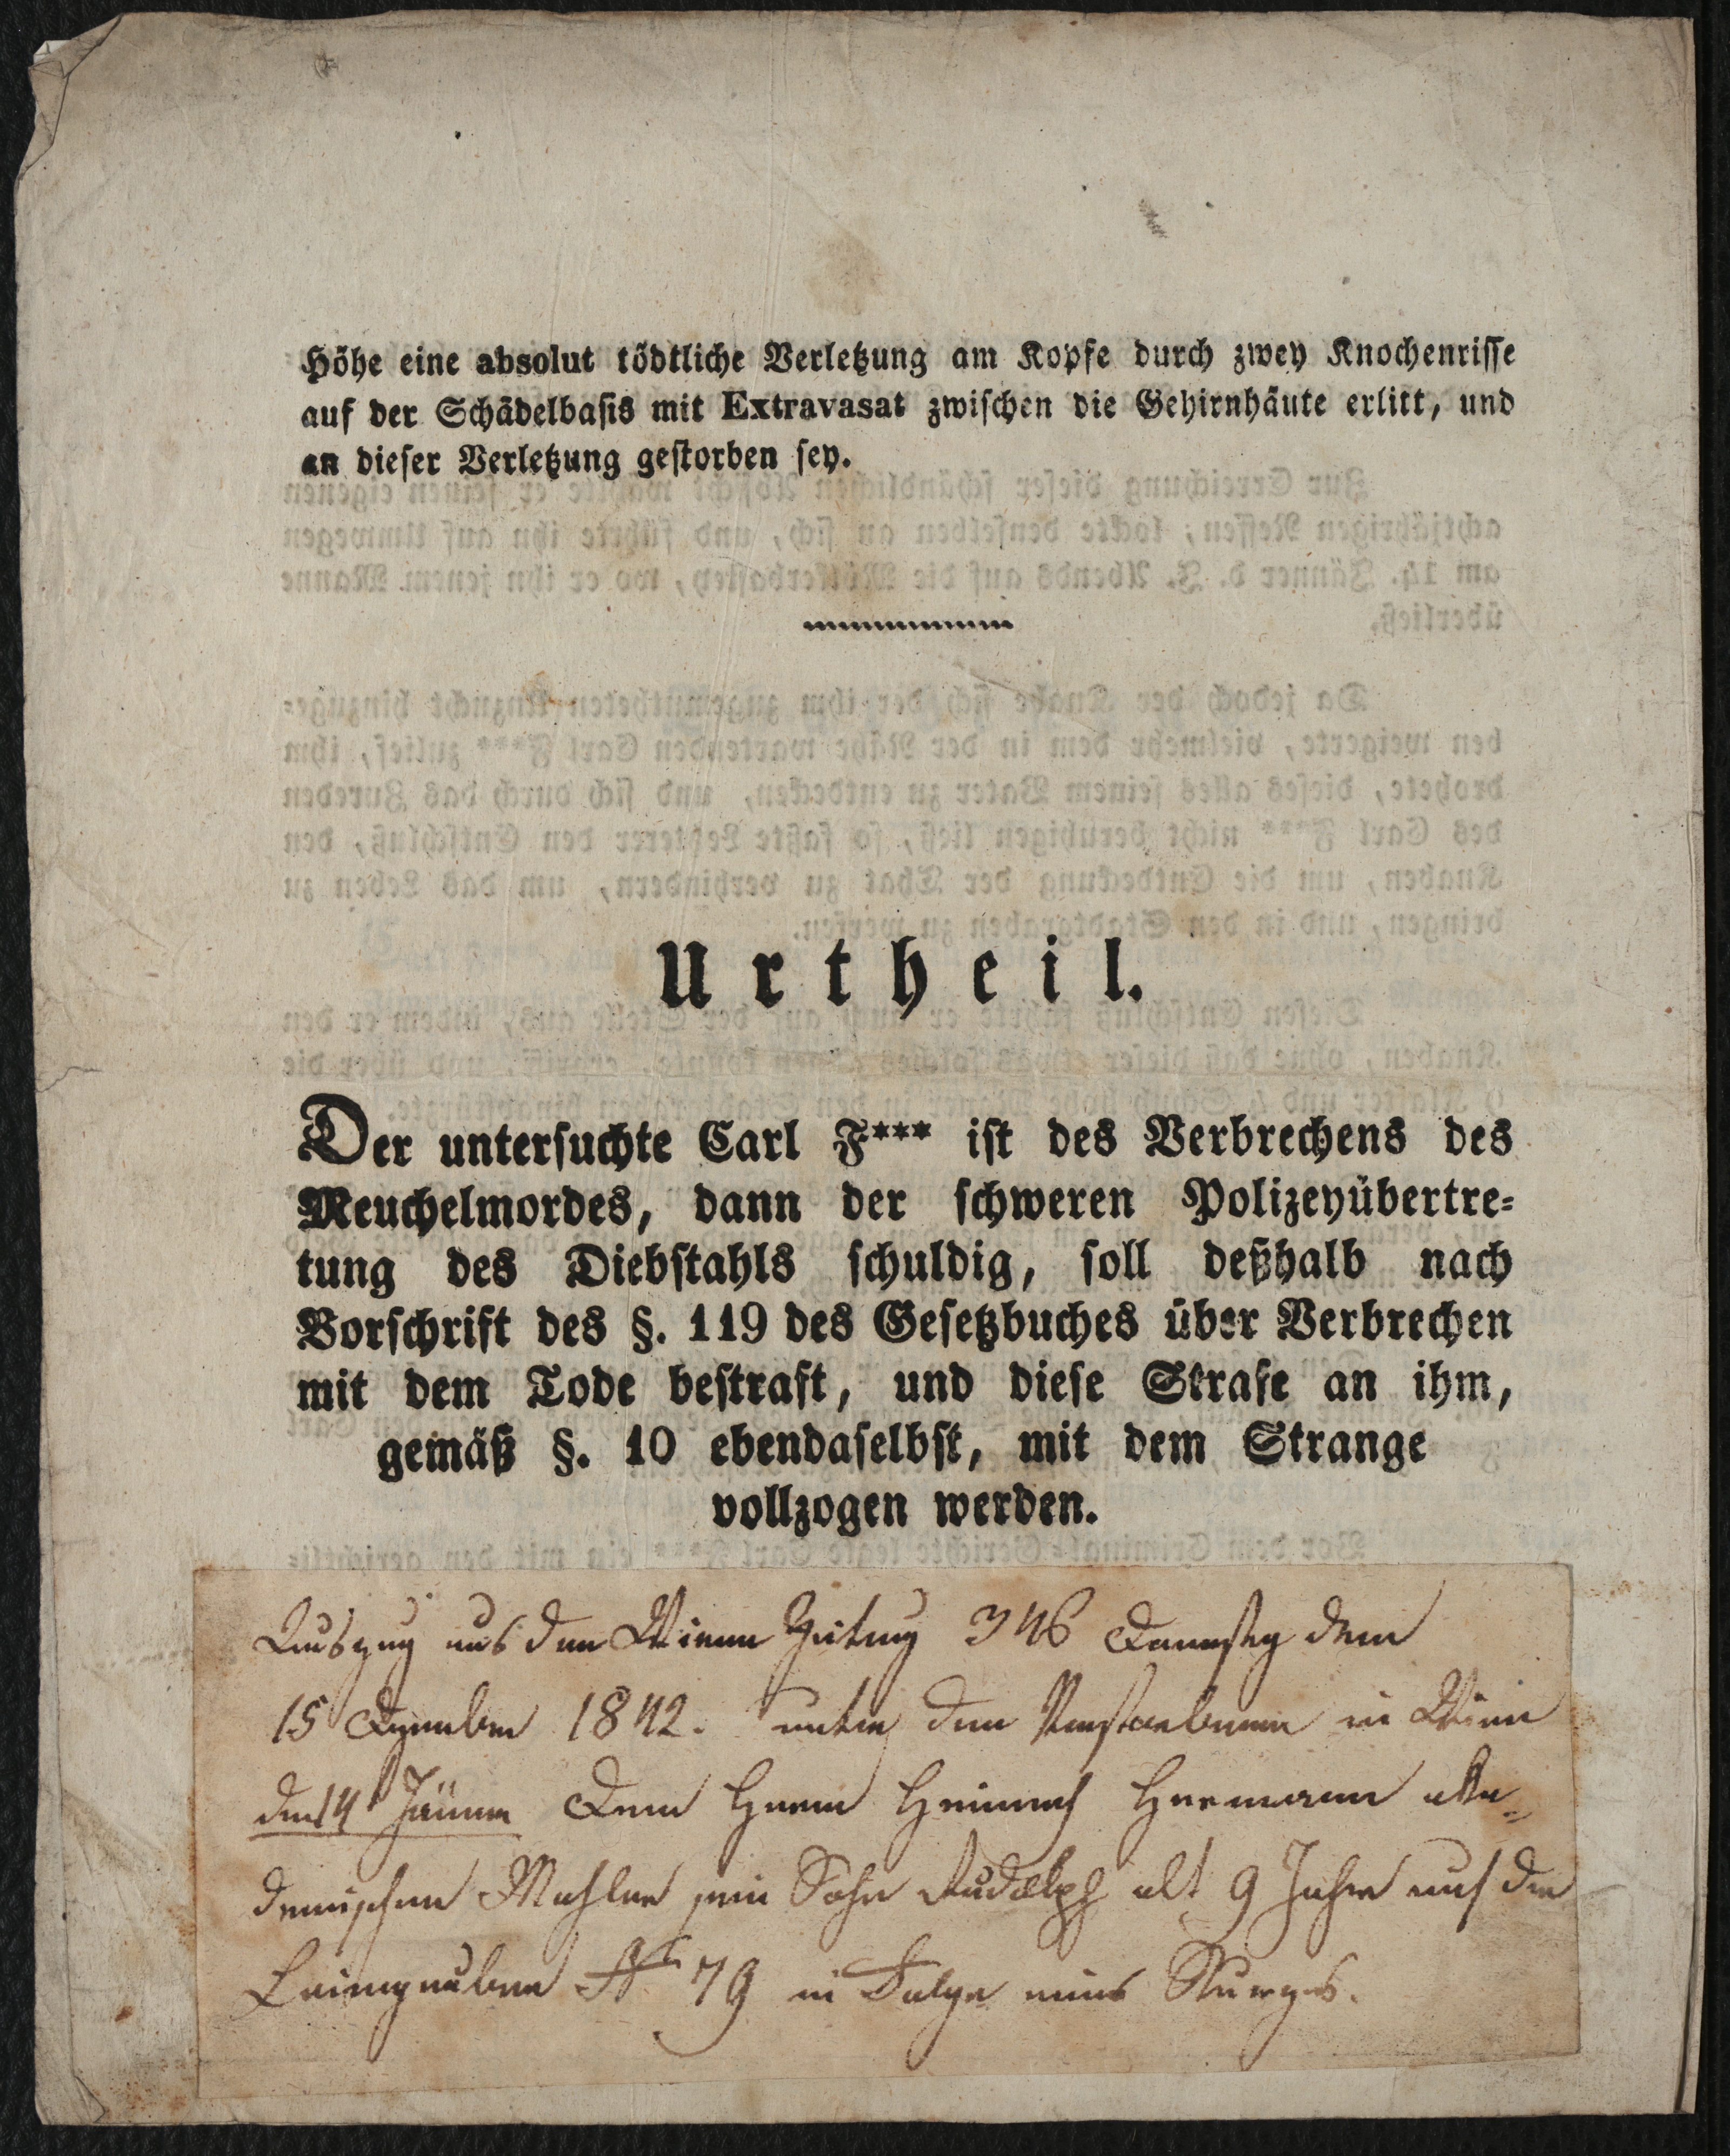 Höhe eine absolut tödtliche Verletzung am Kopfe durch zwey Knochenrisse
auf der Schädelbasis mit Extravasat zwischen die Gehirnhäute erlitt, und
an dieser Verletzung gestorben sey.
Urtheil.
Der untersuchte Carl F*** ist des Verbrechens des
Meuchelmordes, dann der schweren Polizeyübertre⸗
tung des Diebstahls schuldig, soll deßhalb nach
Vorschrift des §. 119 des Gesetzbuches über Verbrechen
mit dem Tode bestraft, und diese Strafe an ihm,
gemäß §. 10 ebendaselbst, mit dem Strange
vollzogen werden.
Auszug aus der Wiener Zeitung 346 Donnerstag dem
15 Dezember 1842. unter den Verstorbenen in Wien
den 14 Jänner Dem Herrn Heinrich Hermann aka⸗
demischen Mahler sein Sohn Rudolph alt 9 Jahre auf der
Leimgruben N 79 in Folge eines Sturzes.